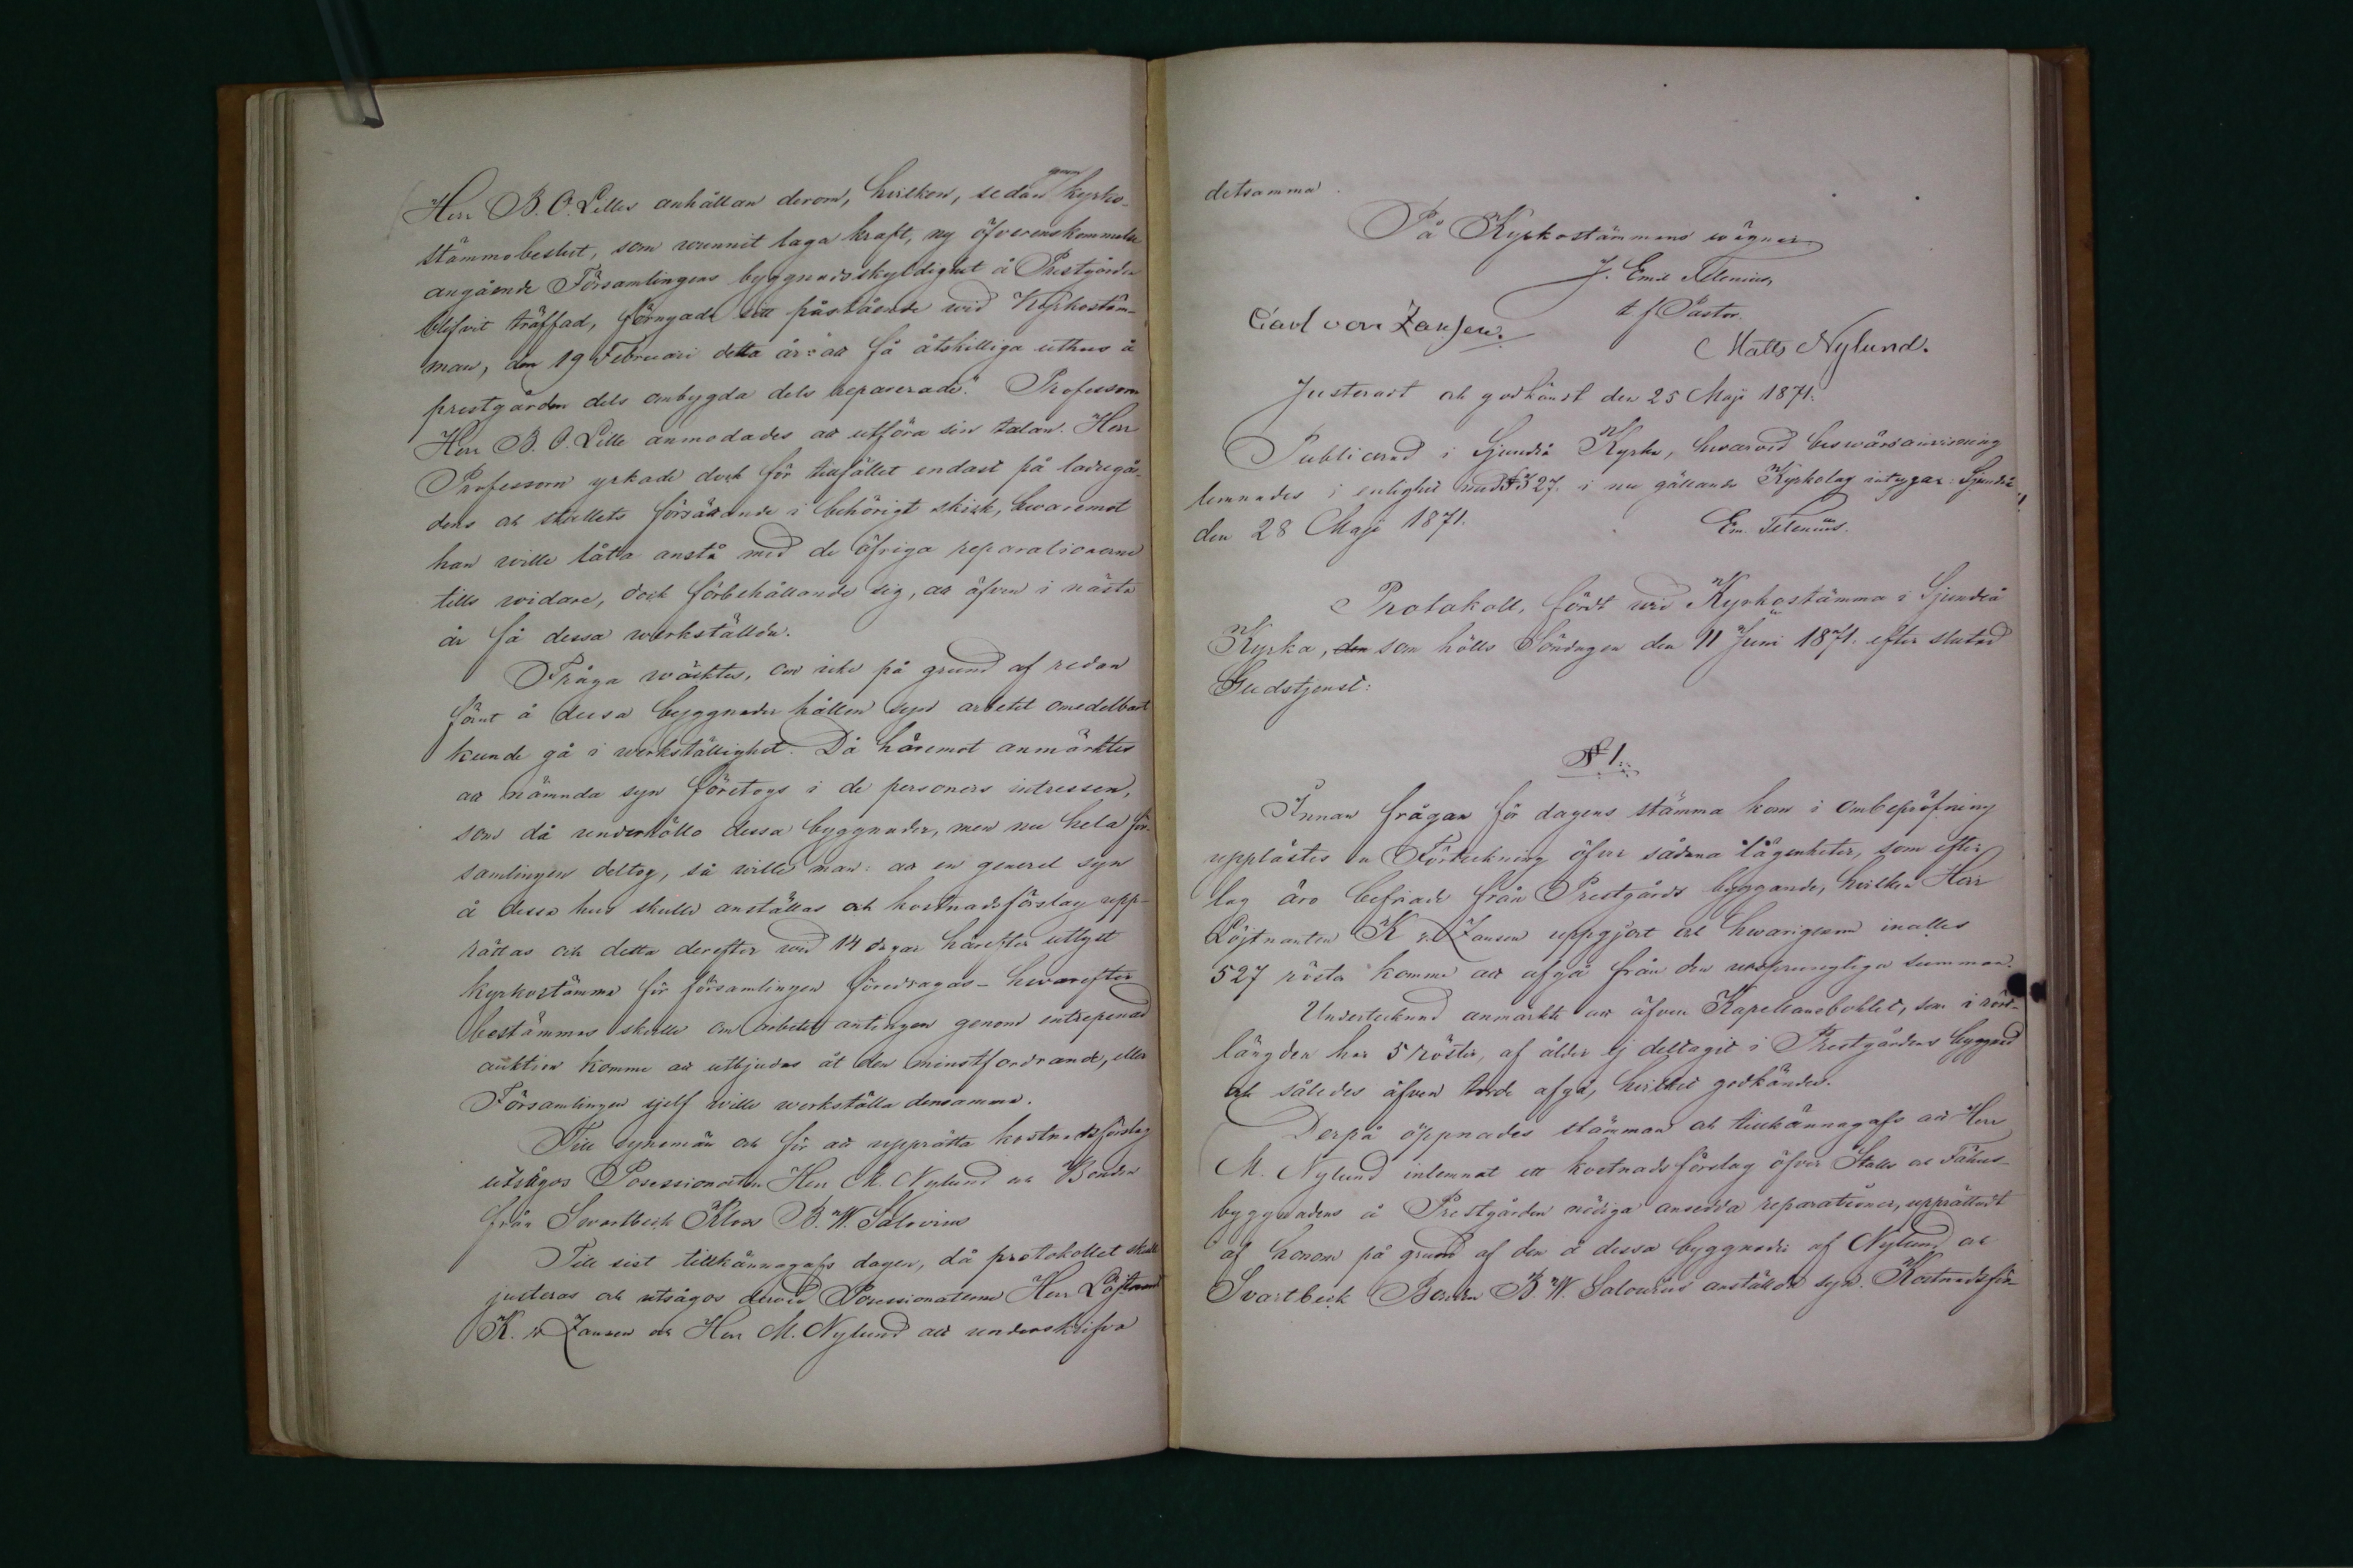 Herr B. O. Lilles anhållan derom, hvilken, sedan genom kyrko-
stämmobeslut, som vunnit laga kraft, ny öfverenskommelse
angående Församlingens byggnadsskyldighet å Prestgården
blifvit träffad, förnyade sitt påstående wid Kyrkostäm-
man, den 19 Februari detta år: att få åtskilliga uthus å
prestgården dels ombygda dels reparerade. Professorn
Herr B. O. Lille anmodades att utföra sin talan. Herr
Professorn yrkade dock för tillfället endast på ladugår-
dens och stallets försättande i behörigt skick, hwaremot
han wille låta anstå med de öfriga reparationerna
tills widare, dock förbehållande sig, att äfven i nästa
år få dessa werkställda.
Fråga wäcktes, om icke på grund af redan
förut å dessa byggnader hållen syn arbetet omedelbart
kunde gå i werkställighet. Då häremot anmärktes
att nämnda syn företogs i de personers intressen,
som då underhöllo dessa byggnader, men nu hela för-
samlingen deltog, så wille man: att en generel syn
å dessa hus skulle anställas och kostnadsförslag upp-
rättas och detta derefter wid 14 dagar härefter utlyst
kyrkostämma för församlingen föredragas - hwarefter
bestämmas skulle om arbetet antingen genom entreprenad
auktion komme att utbjudas åt den minstfordrande, eller
Församlingen sjelf wille werkställa densamma.
Till synemän och för att upprätta kostnadsförslag
utsågos Possessionaten Herr M. Nylund och Bonden
från Swartbeck Klos B. W. Salovius
Till sist tillkännagafs dagen, då protokollet skulle
justeras och utsågos dervid Possessionaterna Herr Löjtnant
K. v Zansen och Herr M. Nylund att underskrifva
detsamma.
På Kyrkostämmans wägnar
J. Emil Telenius
t. f. Pastor.
Carl von Zansen.
Matts Nylund.
Justerart och godkänt den 25 Maji 1871.
Publicerad i Sjundeå Kyrka, hwarvid beswärsanvisning
lemnades i enlighet med § 327. i nu gällande Kyrkolag intygar: Sjundeå
den 28 Maji 1871.
Em. Telenius.
Protokoll, fördt wid Kyrkostämma i Sjundeå
Kyrka, den som hölls Söndagen den 11 Juni 1871. efter slutad
Gudstjenst:
§ 1.
Innan frågan för dagens stämma kom i ombepröfning
upplästes en Förteckning öfver sådana lägenheter, som efter
lag äro befriade från Prestgårds byggande, hvilken Herr
Löjtnanten K v. Zansen uppgjort och hwarigenom inalles
527 rösta komme att afgå från den ursprungliga summan.
Undertecknad anmärkte att äfven Kapellansbohlet, som i röst-
längden har 5 röster, af ålder ej deltagit i Prestgårdens byggnad
och således äfven torde afgå, hvilket godkändes.
Derpå öppnades stämman och tillkännagafs att Herr
M. Nylund inlemnat ett kostnadsförslag öfver Stalls och Fähus-
byggnadens å Prestgården nödiga ansedda reparationer, upprättadt
af honom på grund af den å dessa byggnader af Nylund och
Svartbeck Bonden B. W. Salovius anställda syn. Kostnadsför-